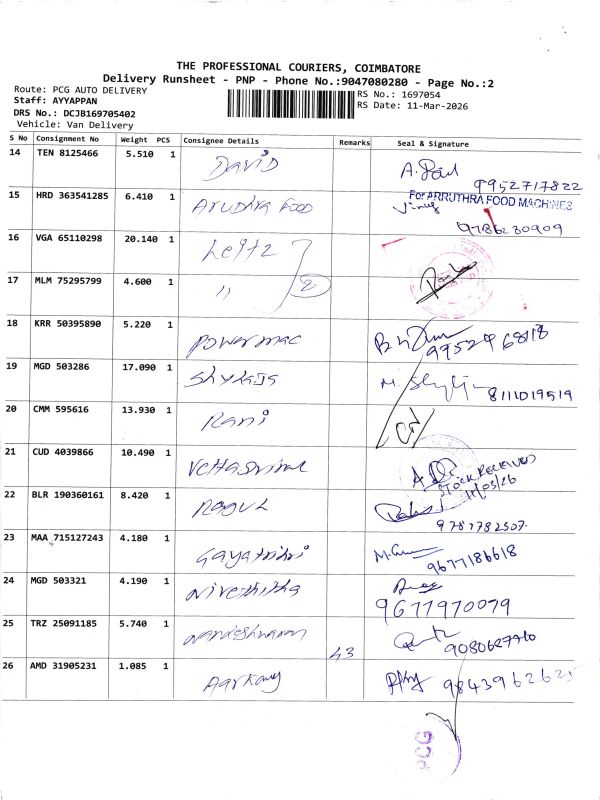 THE PROFESSIONAL COURIERS, COIMBATORE
Delivery Runsheet - PNP - Phone No.:9047080280 - Page No.:2
Route: PCG AUTO DELIVERY
Staff: AYYAPPAN
DRS No.: DCJB169705402
Vehicle: Van Delivery
RS No.: 1697054
RS Date: 11-Mar-2026
S No Consignment No Weight PCS Consignee Details Remarks Seal & Signature
14 TEN 8125466 5.510 1 DAVID 9952717822
15 HRD 363541285 6.410 1 Arudhra FOOD For ARRUTHRA FOOD MACHINES 9786230909
16 VGA 65110298 20.140 1 Leitz
17 MLM 75295799 4.600 1 " 2
18 KRR 50395890 5.220 1 powermac 9952968118
19 MGD 503286 17.090 1 8111019519
20 CMM 595616 13.930 1 Rani
21 CUD 4039866 10.490 1 STOCK RECEIVED 11/03/26
22 BLR 190360161 8.420 1 RAGUL 9787782507.
23 MAA 715127243 4.180 1 Gayathiri 9677186618
24 MGD 503321 4.190 1 Nivethitha 9677970079
25 TRZ 25091185 5.740 1 43
26 AMD 31905231 1.085 1
PCG